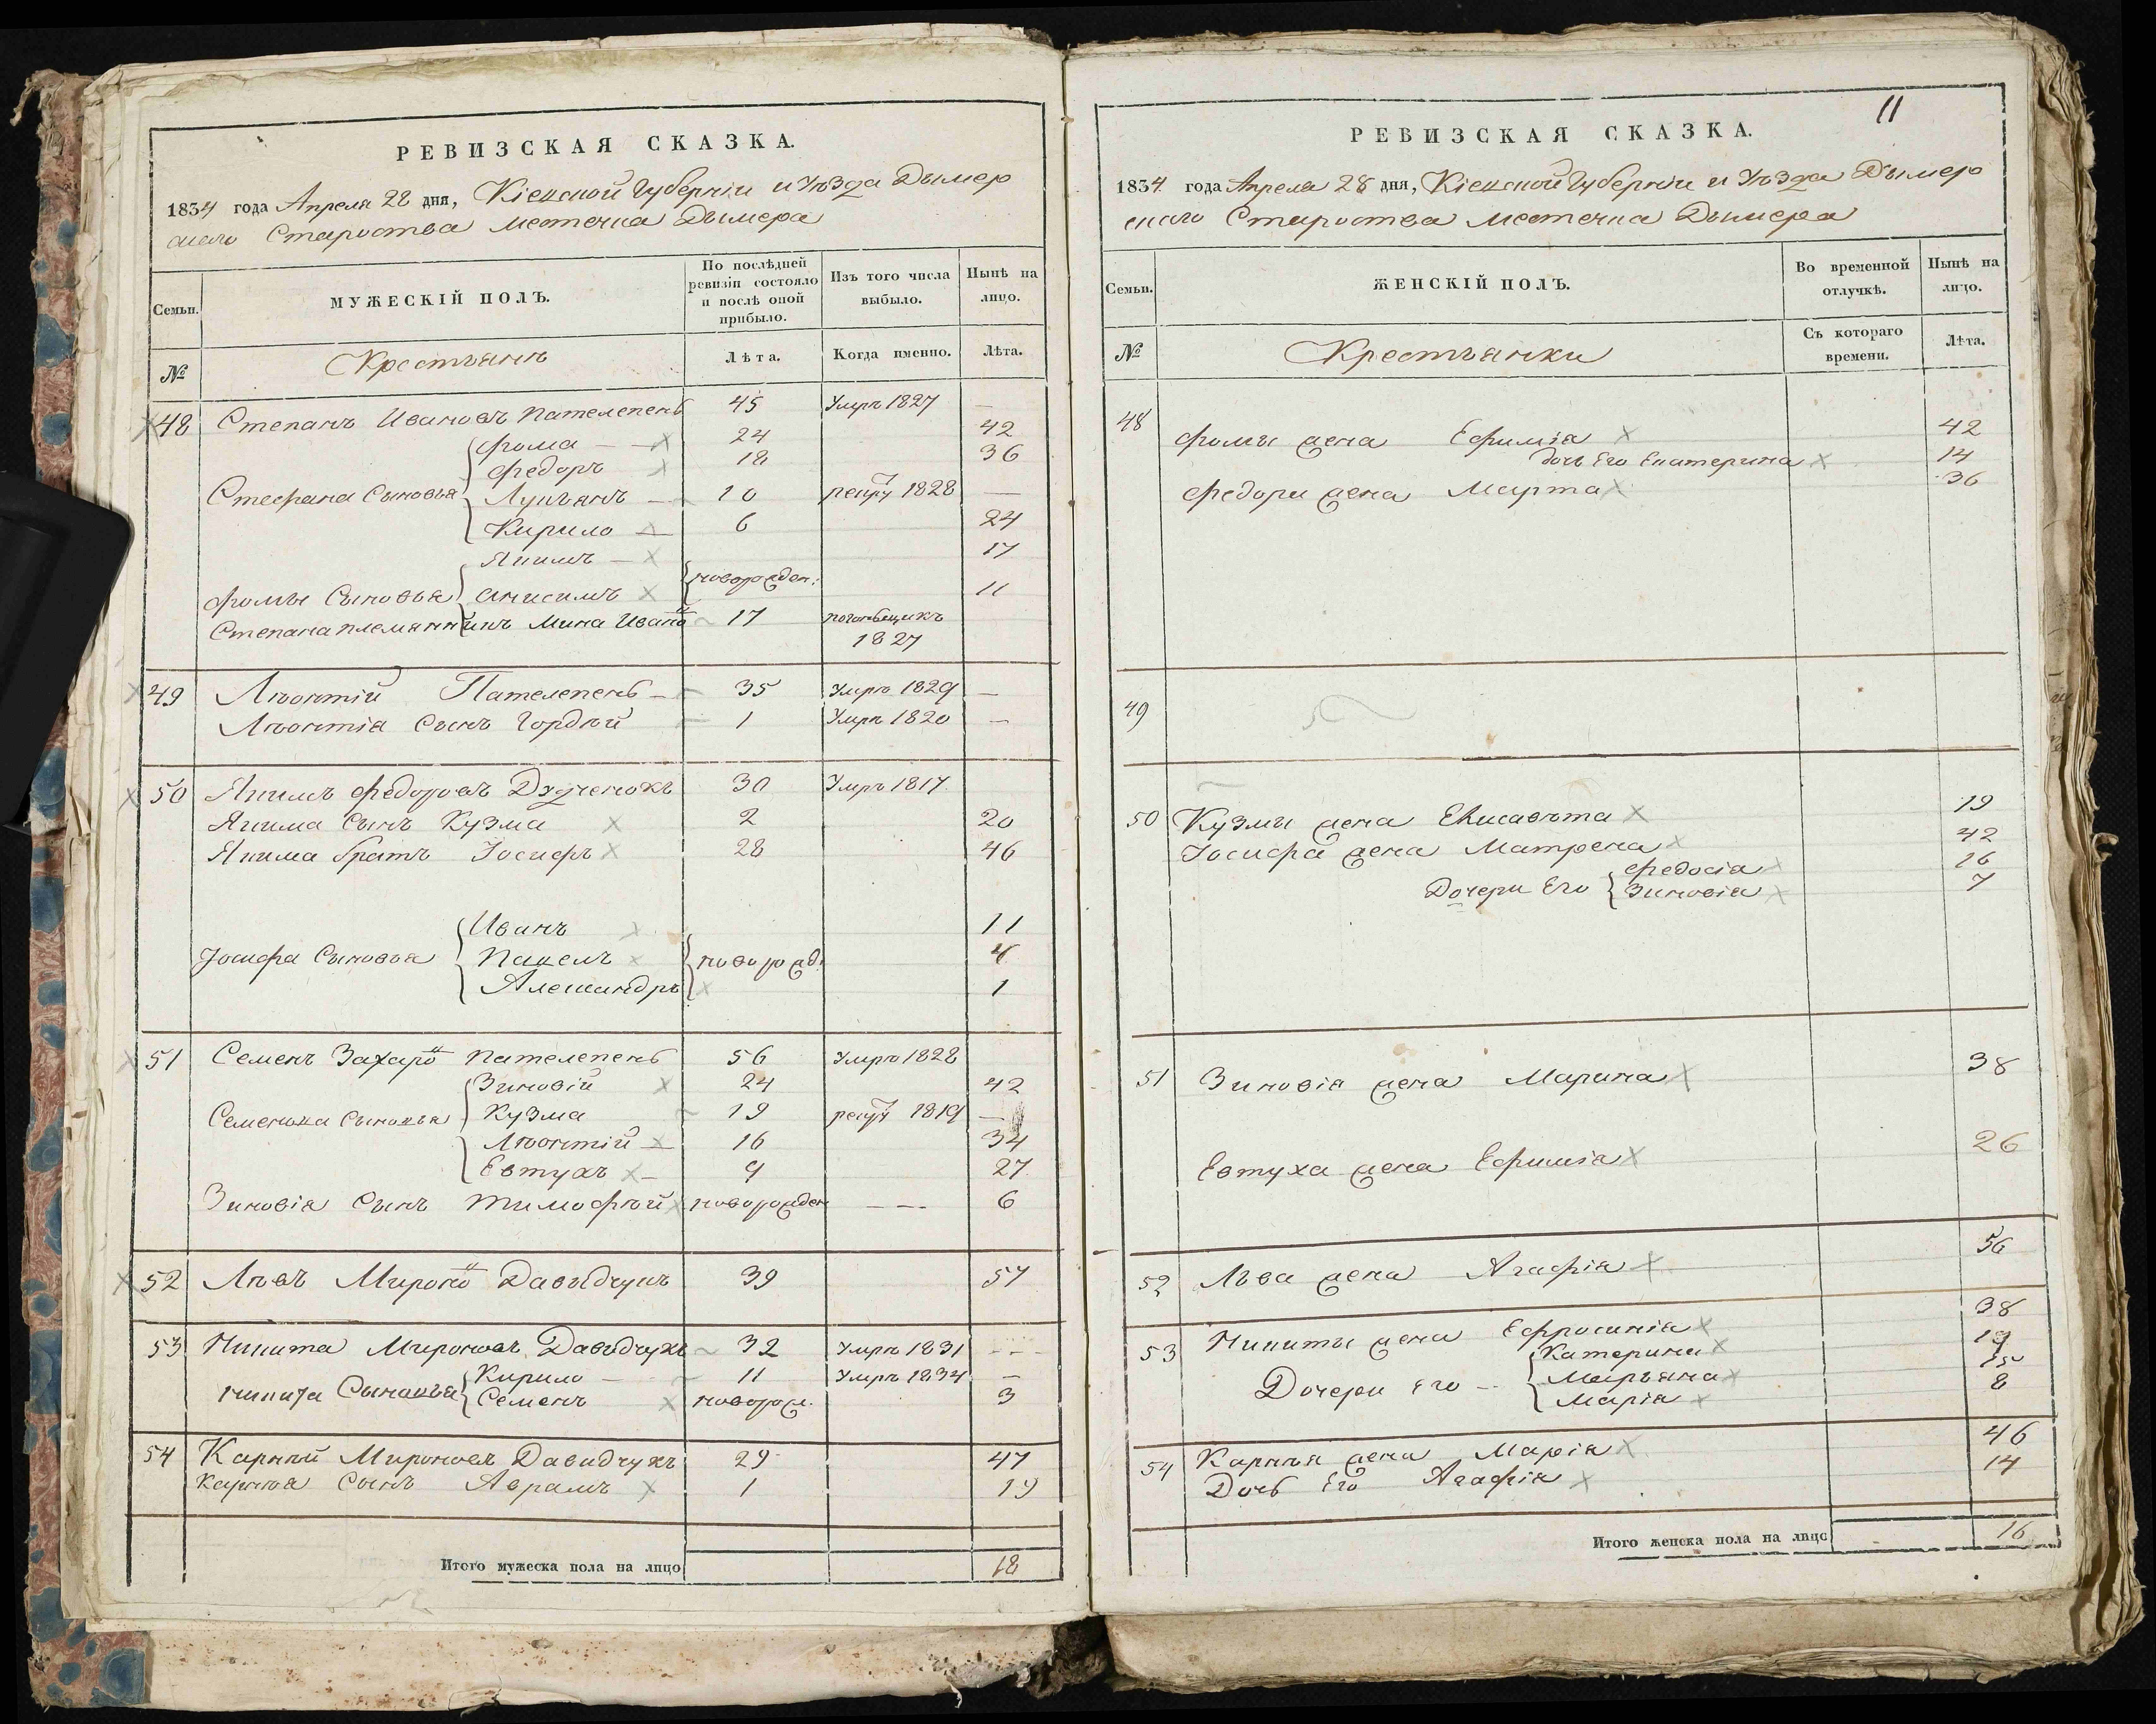 РЕВИЗСКАЯ СКАЗКА.
1834 года Апреля 28 дня, Кіевской Губерніи и Уѣзда Дымер
скаго Староства местечка Дымера
Семьи. МУЖЕСКІЙ ПОЛЪ. По послѣдней ревизіи состояло и послѣ оной прибыло. Изъ того числа выбыло. Нынѣ на лицо.
№ Крестьянѣ Лѣта. Когда именно. Лѣта.
48 Степанъ Ивановъ Пателепень 45 Умръ 1827 —
Фома — 24 42
Федоръ 18 36
Стефана Сыновья Лукьянъ — 10 рекру 1828 —
Кирило — 6 24
Якимъ — 17
Фомы Сыновья Анисимъ новорожден: 11
Степана племянникъ Мина Ивано 17 1827
49 Лѣонтій Пателепень — 35 Умръ 1829 —
Лѣонтія Сынъ Гордѣй 1 Умръ 1820 —
50 Якимъ Федоровъ 30 Умръ 1817
Якима Сынъ Кузма 2 20
Якима братъ Іосифъ 28 46
Иванъ 11
Іосифа Сыновья Павелъ новорожд: 4
Александръ 1
51 Семенъ Захаро Пателепень 56 Умръ 1828
Зиновій 24 42
Сыновья Кузма 19 рекру 1819 —
Лѣонтій — 16 34
Евтухъ — 9 27
Зиновія Сынъ Тимофѣй новорожден — — 6
52 Лѣвъ Мироно Давыдчукъ 39 57
53 Никита Мироновъ Давыдчукъ 32 Умръ 1831 — —
Кирило — 11 Умръ 1834 —
Никита Сыновья Семенъ новорож. 3
54 Карпѣй Мироновъ Давидчукъ 29 47
Карпѣя Сынъ Аврамъ 1 19
Итого мужеска пола на лицо 18
11
РЕВИЗСКАЯ СКАЗКА.
1834 года Апреля 28 дня, Кіевской Губерніи и Уѣзда Дымер
скаго Староства местечка Дымера
Семьи. ЖЕНСКІЙ ПОЛЪ. Во временной отлучкѣ. Нынѣ на лицо.
№ Крестьянки Съ котораго времени. Лѣта.
48 Фомы жена Ефимія 42
дочь Его Екатерина 14
Федора жена Марта 36
49
50 Кузмы жена Елисавѣта 19
Іосифа жена Матрена 42
Федосія 16
Дочери Его Зиновія 7
51 Зиновія жена Марина 38
Евтуха жена Ефимія 26
52 Лѣва жена Агафія 56
53 Никиты жена Ефросинія 38
Катерина 19
Дочери его — Марьяна 15
Марія 8
54 Карпѣя жена Марія 46
Дочь Его Агафія 14
Итого женска пола на лицо 16